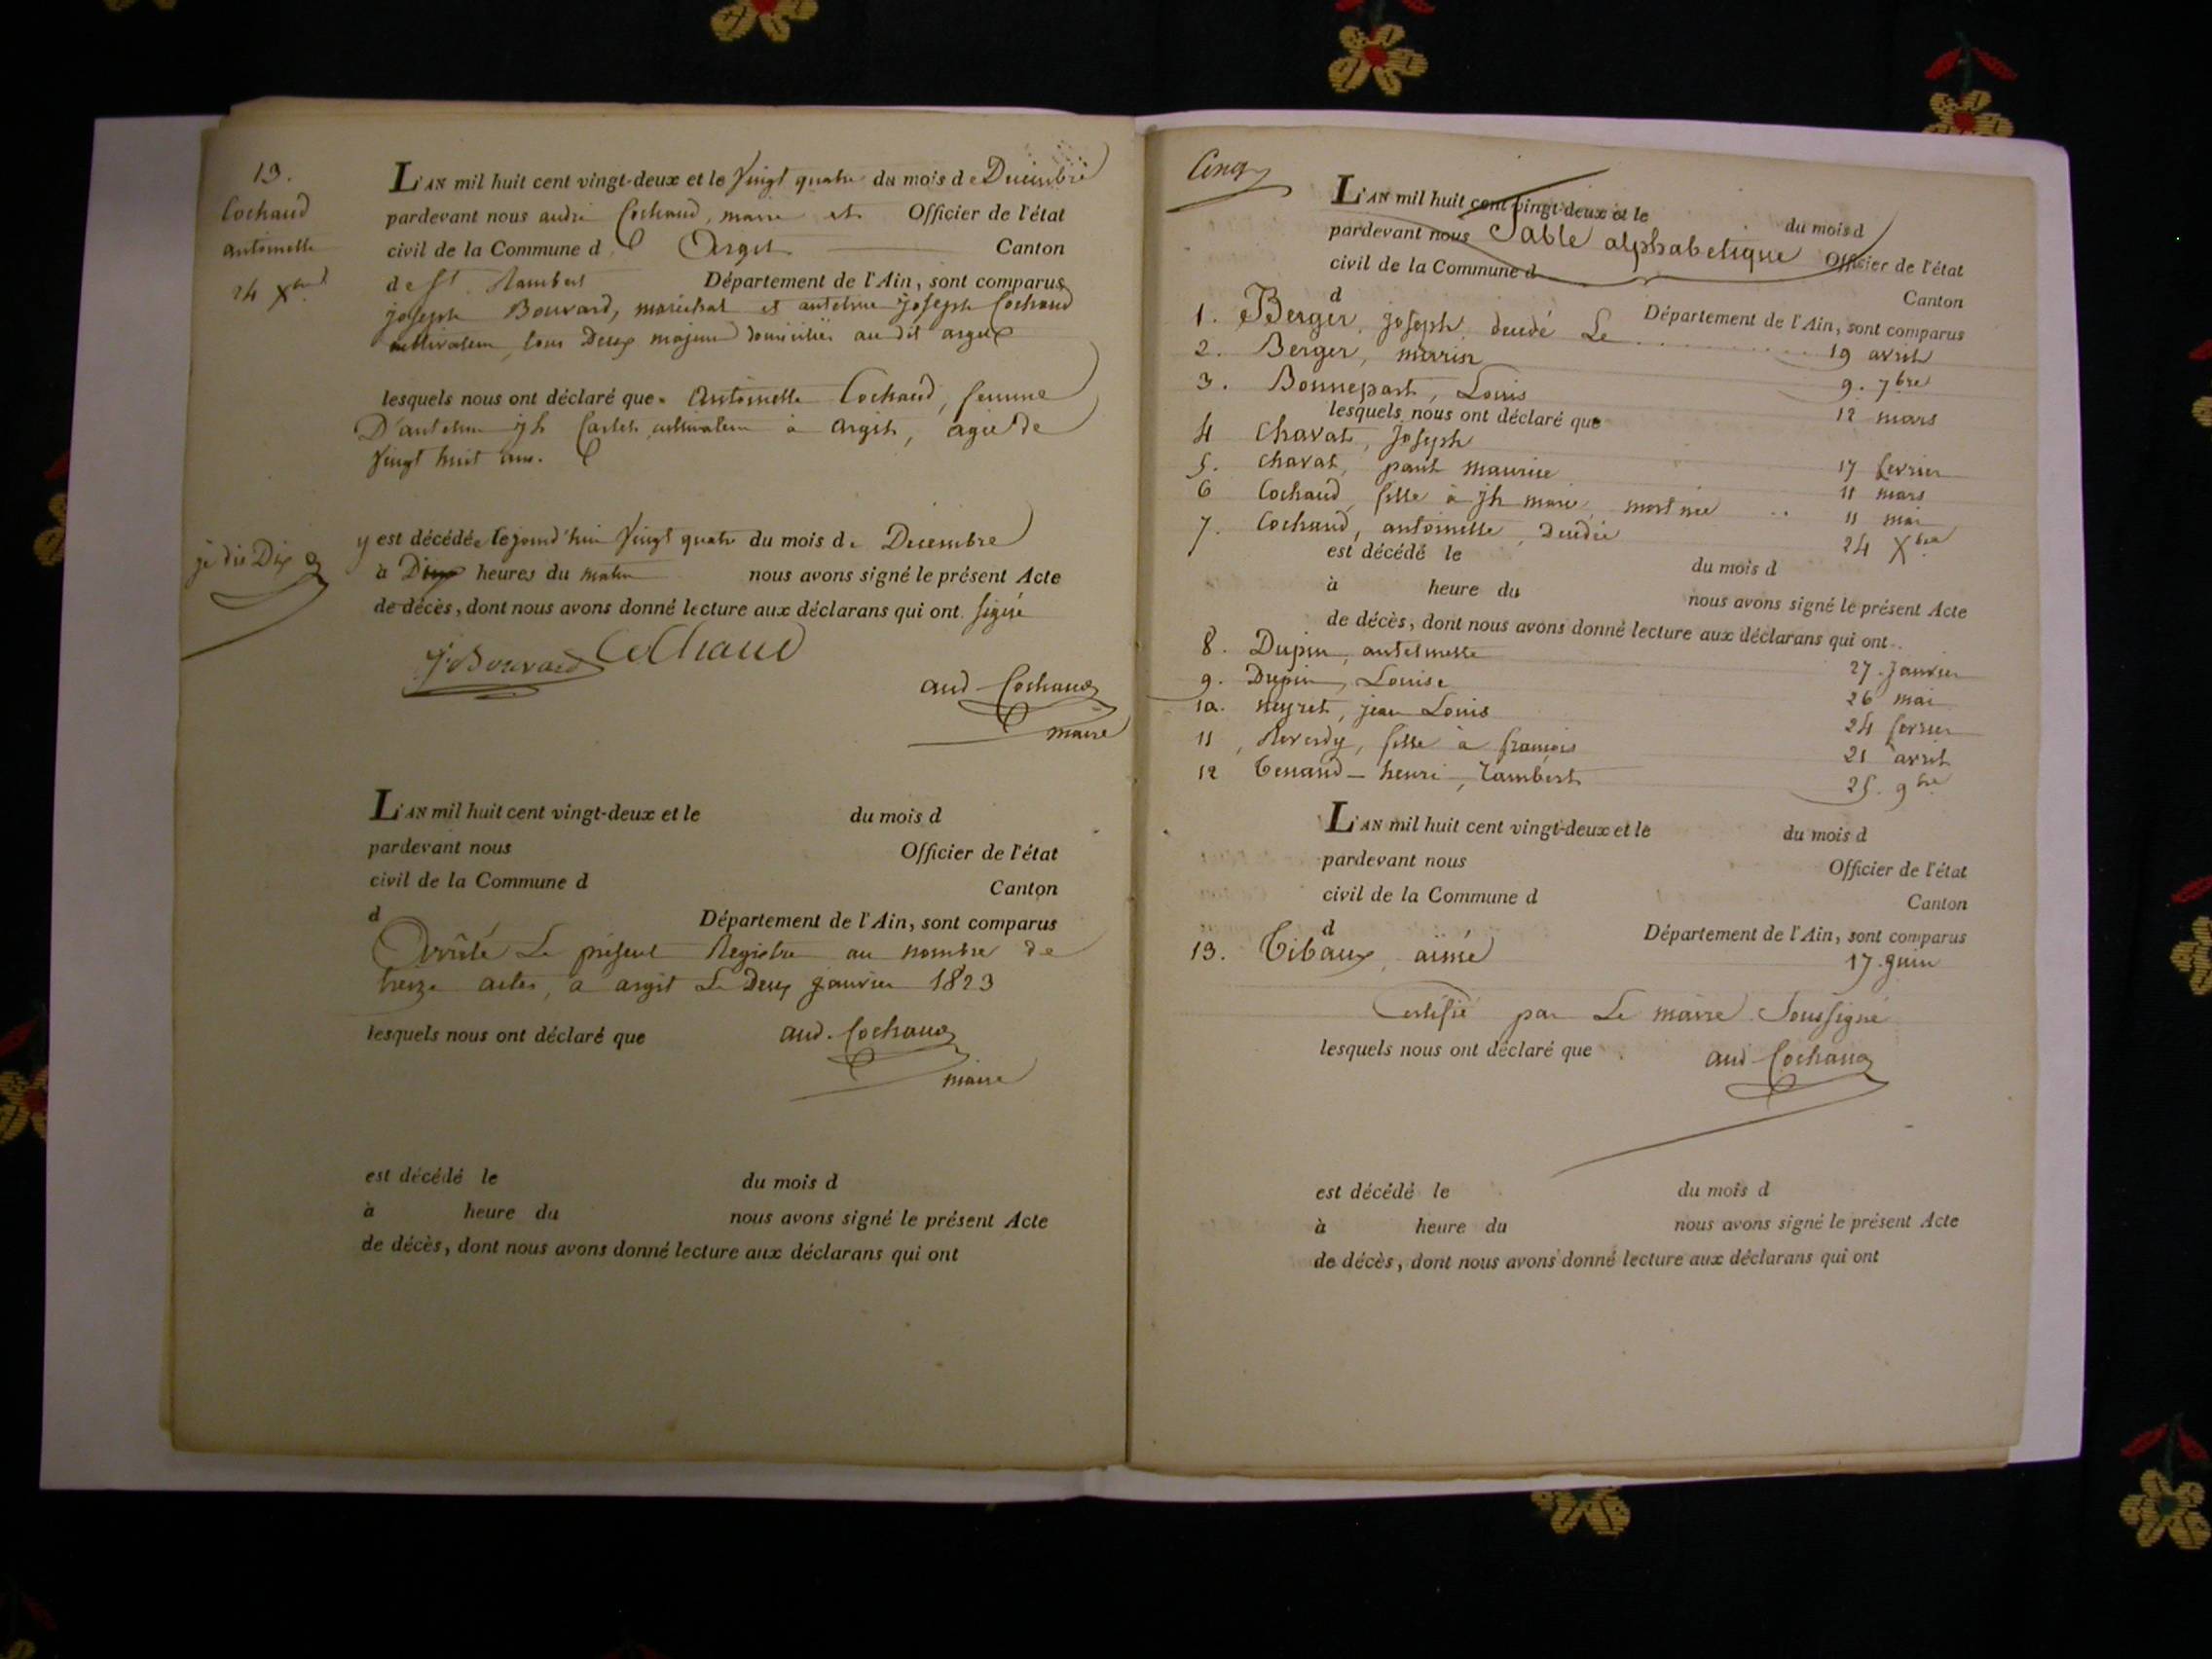 13.
Cochaud
antoinette
24 Xbre
L'AN mil huit cent vingt-deux et le Vingt quatre du mois de Decembre
pardevant nous andré Cochaud, maire et Officier de l'état
civil de la Commune d Argit Canton
de St. Rambert Département de l'Ain, sont comparus
joseph Bouvard, maréchal et antelme joseph Cochaud
cultivateur, tous Deux majeurs domiciliés au dit argit
lesquels nous ont déclaré que antoinette Cochaud, femme
D'antelme jh cultivateur à argit, agée de
Vingt huit ans.
y est décédée le jourd'hui Vingt quatre du mois de Decembre
je dis Dix
à heures du matin nous avons signé le présent Acte
de décès, dont nous avons donné lecture aux déclarans qui ont signé
J. Bouvard Cochaud
and Cochaud
maire
L'AN mil huit cent vingt-deux et le du mois d
pardevant nous Officier de l'état
civil de la Commune d Canton
d Département de l'Ain, sont comparus
Arrêté Le présent Registre au nombre de
treize actes, a argit Le Deux janvier 1823
lesquels nous ont déclaré que and. Cochaud
maire
est décédé le du mois d
à heure du nous avons signé le présent Acte
de décès, dont nous avons donné lecture aux déclarans qui ont
Cinq
L'AN mil huit cent vingt-deux et le du mois d
pardevant nous Table alphabetique Officier de l'état
civil de la Commune d Canton
d Département de l'Ain, sont comparus
1. Berger, joseph, decedé Le 19 avril
2. Berger, marin 9. 7bre
3. Bonnepart, Louis 12 mars
lesquels nous ont déclaré que
4 Chavat, Joseph 17 fevrier
5. Chavat, paul maurice 11 mars
6 Cochaud, fille à jh marie, mort née 11 mai
7. Cochaud, antoinette, decedée 24 Xbre
est décédé le du mois d
à heure du nous avons signé le présent Acte
de décès, dont nous avons donné lecture aux déclarans qui ont
8. Dupin, antelmette 27. Janvier
9. Dupin, Louise 26 mai
10. neyret, jean Louis 24 fevrier
11, Reverdy, fille à françois 21 avril
12 Tenand - henri, rambert 25. 9bre
L'AN mil huit cent vingt-deux et le du mois d
pardevant nous Officier de l'état
civil de la Commune d Canton
d Département de l'Ain, sont comparus
13. Tibaux, aimé 17. Juin
Certifié par Le maire Soussigné
lesquels nous ont déclaré que and Cochaud
est décédé le du mois d
à heure du nous avons signé le présent Acte
de décès, dont nous avons donné lecture aux déclarans qui ont